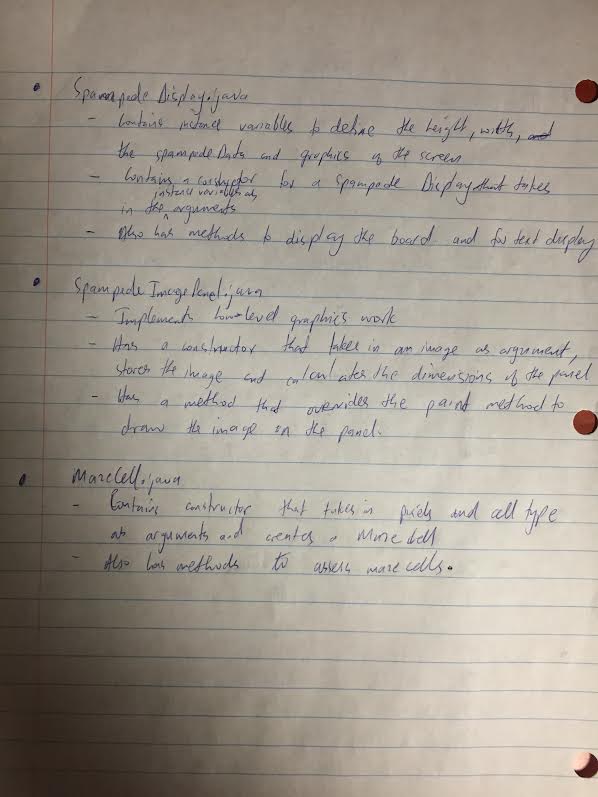 Spampede Display.java
- Contains instance variables to define the height, width, and
the spampede Data and graphics of the screen
- Contains a constructor for a Spampede Display that takes
instance variables as
in the ^ arguments
- Also has methods to display the board and for text display
Spampede ImagePanel.java
- Implements low-level graphics work
- Has a constructor that takes in an image as argument,
stores the image and calculates the dimensions of the panel
- Has a method that overrides the paint method to
draw the image on the panel.
MazeCell.java
- Contains constructor that takes in and cell type
as arguments and creates a Maze Cell
- Also has methods to assess maze cells.